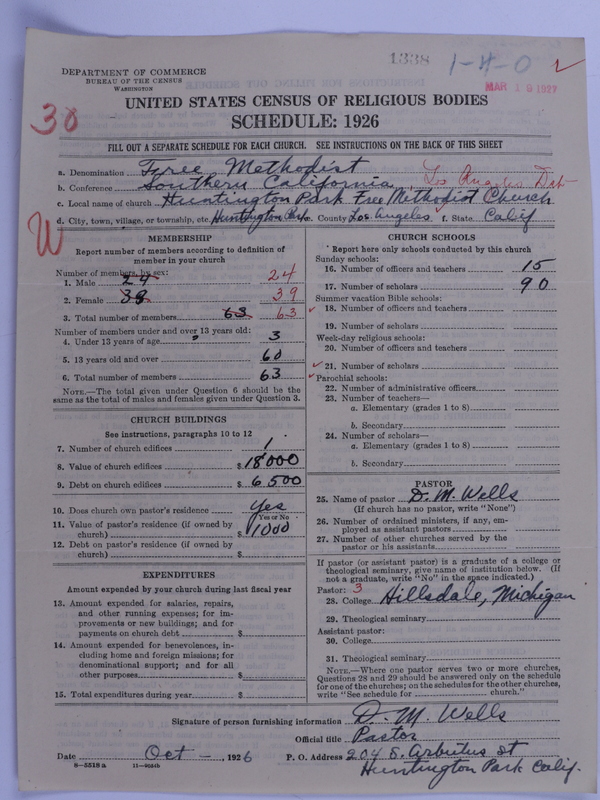 1338 1-4-0
DEPARTMENT OF COMMERCE
BUREAU OF THE CENSUS
WASHINGTON
MAR 19 1927
30
UNITED STATES CENSUS OF RELIGIOUS BODIES
SCHEDULE: 1926
FILL OUT A SEPARATE SCHEDULE FOR EACH CHURCH. SEE INSTRUCTIONS ON THE BACK OF THIS SHEET
a. Denomination Free Methodist
b. Conference Southern California, Los Angeles Dist
c. Local name of church Huntington Park Free Methodist Church
d. City, town, village, or township, etc. Huntington Park e. County Los Angeles f. State Calif
W
MEMBERSHIP
Report number of members according to definition of
member in your church
Number of members, by sex:
1. Male 24 24
2. Female 38 39
3. Total number of members 63 63
Number of members under and over 13 years old:
4. Under 13 years of age 3
5. 13 years old and over 60
6. Total number of members 63
NOTE.—The total given under Question 6 should be the
same as the total of males and females given under Question 3.
CHURCH BUILDINGS
See instructions, paragraphs 10 to 12
7. Number of church edifices 1
8. Value of church edifices $ 18000
9. Debt on church edifices $ 6,500
10. Does church own pastor's residence Yes
Yes or No
11. Value of pastor's residence (if owned by
church) $ 1000
12. Debt on pastor's residence (if owned by
church) $
EXPENDITURES
Amount expended by your church during last fiscal year
13. Amount expended for salaries, repairs,
and other running expenses; for im-
provements or new buildings; and for
payments on church debt $
14. Amount expended for benevolences, in-
cluding home and foreign missions; for
denominational support; and for all
other purposes $
15. Total expenditures during year $
CHURCH SCHOOLS
Report here only schools conducted by this church
Sunday schools:
16. Number of officers and teachers 15
17. Number of scholars 90
Summer vacation Bible schools:
18. Number of officers and teachers
19. Number of scholars
Week-day religious schools:
20. Number of officers and teachers
21. Number of scholars
Parochial schools:
22. Number of administrative officers
23. Number of teachers—
a. Elementary (grades 1 to 8)
b. Secondary
24. Number of scholars—
a. Elementary (grades 1 to 8)
b. Secondary
PASTOR
25. Name of pastor D. M. Wells
(If church has no pastor, write "None")
26. Number of ordained ministers, if any, em-
ployed as assistant pastors
27. Number of other churches served by the
pastor or his assistants
If pastor (or assistant pastor) is a graduate of a college or
theological seminary, give name of institution below. (If
not a graduate, write "No" in the space indicated.)
Pastor: 3
28. College Hillsdale, Michigan
29. Theological seminary
Assistant pastor:
30. College
31. Theological seminary
NOTE.—Where one pastor serves two or more churches,
Questions 28 and 29 should be answered only on the schedule
for one of the churches; on the schedules for the other churches,
write "See schedule for church."
Signature of person furnishing information D. M. Wells
Official title Pastor
Date Oct —, 1926 P. O. Address 204 S. Arbutus St
8-5518 a 11-9054b Huntington Park Calif.